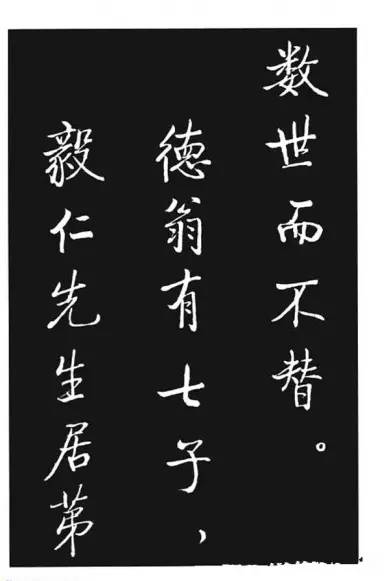 数世而不替。
德翁有七子，
毅仁先生居苐